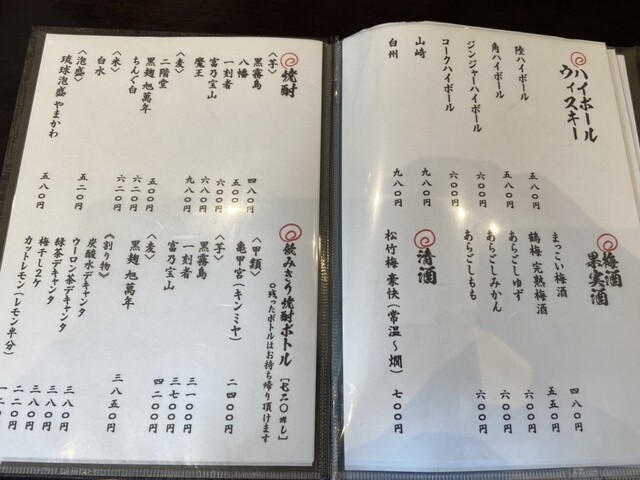 ハイボール
ウィスキー
陸ハイボール 五八〇円
角ハイボール 五八〇円
ジンジャーハイボール 六〇〇円
コークハイボール 六〇〇円
山崎 九八〇円
白州 九八〇円
梅酒
果実酒
まっこい梅酒 四八〇円
鶴梅 完熟梅酒 五五〇円
あらごしゆず 六〇〇円
あらごしみかん 六〇〇円
あらごしもも 六〇〇円
清酒
松竹梅 豪快(常温〜燗) 七〇〇円
焼酎
〈芋〉
黒霧島 四八〇円
八幡 五〇〇円
一刻者 六〇〇円
富乃宝山 六八〇円
魔王 九八〇円
〈麦〉
二階堂 五〇〇円
黒麹 旭萬年 六二〇円
ちんぐ白 六二〇円
〈米〉
白水 五二〇円
〈泡盛〉
琉球泡盛 やまかわ 五八〇円
飲みきり焼酎ボトル [七二〇ml]
○残ったボトルはお持ち帰り頂けます
〈甲類〉
亀甲宮(キンミヤ) 二四〇〇円
〈芋〉
黒霧島 三一〇〇円
一刻者 三七〇〇円
富乃宝山 四二〇〇円
〈麦〉
黒麹 旭萬年 三八五〇円
《割り物》
炭酸水デキャンタ 三八〇円
ウーロン茶デキャンタ 三八〇円
緑茶デキャンタ 三八〇円
梅干し2ケ 二二〇円
カットレモン(レモン半分)